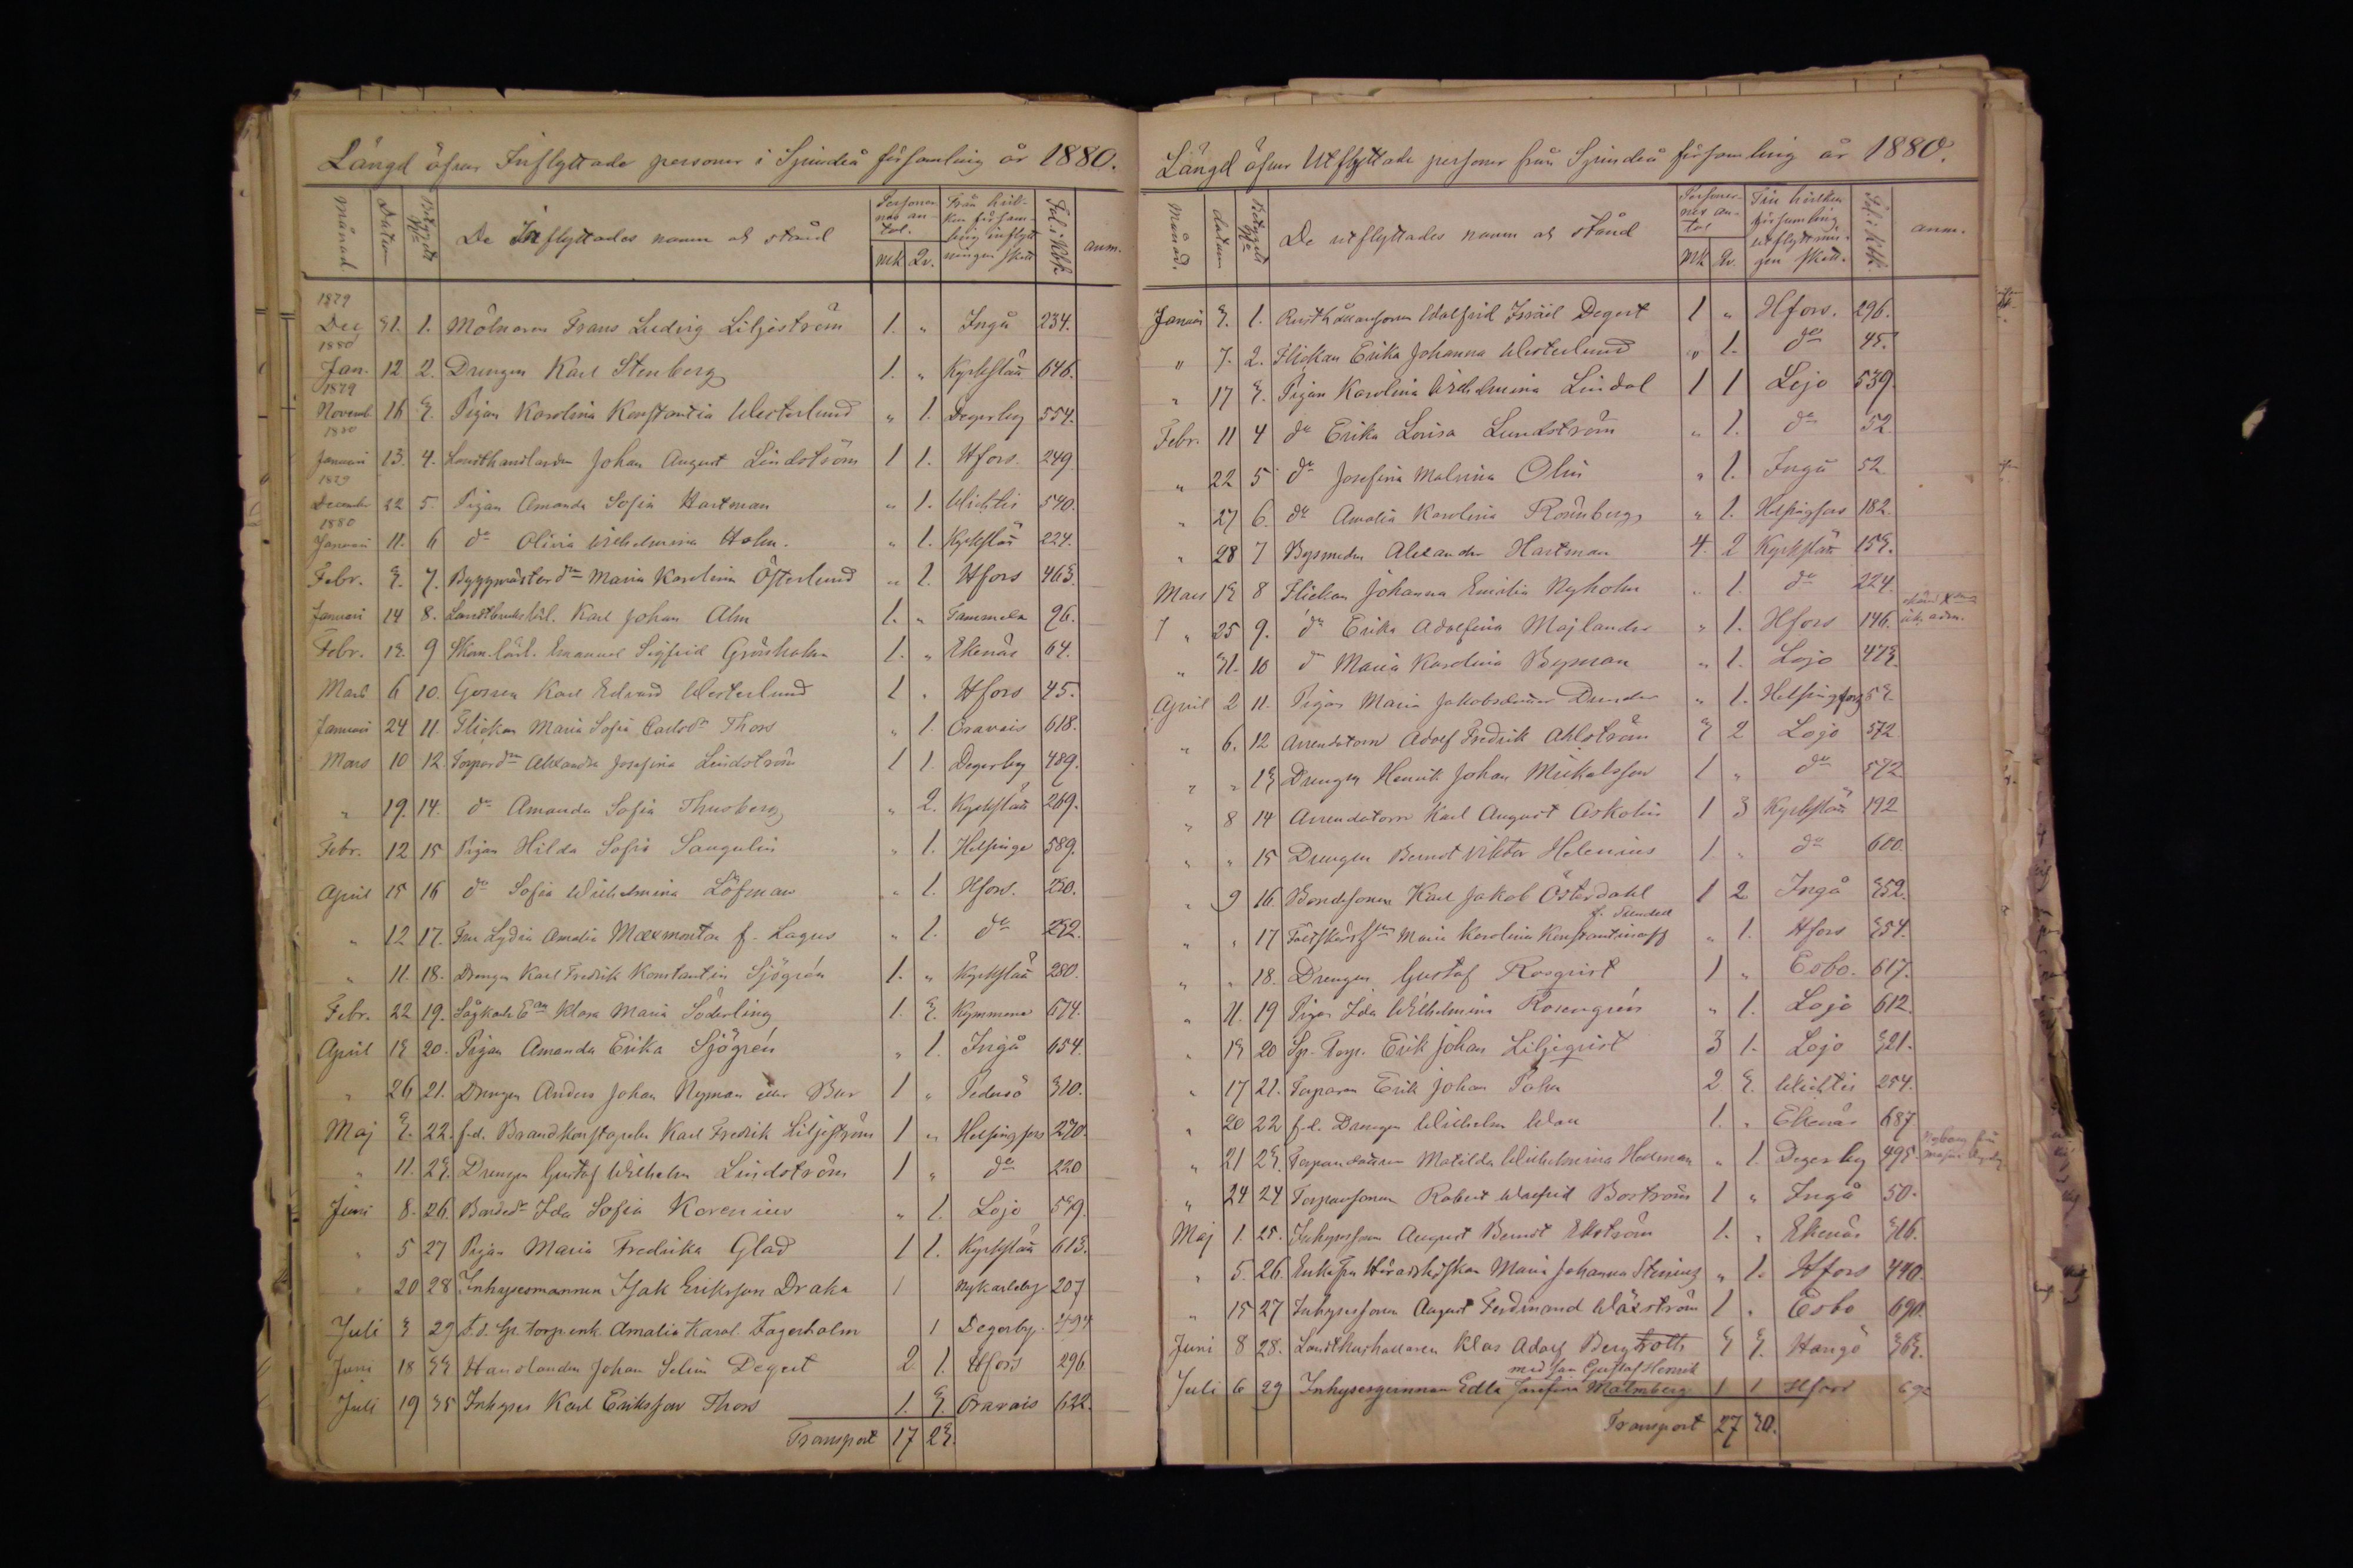 Längd öfver Inflyttade personer i Sjundeå församling år 1880.
Månad Datum Betygets No De Inflyttades namn och stånd Personernas antal. Mk. Qv. Från hvilken församling inflyttningen skett Fol. i Kbk. anm.
1879
Dec 31. 1. Mölnaren Frans Ludvig Liljeström 1. „ Ingå 234.
1880
Jan. 12 2. Drengen Karl Stenberg 1. „ Kyrkslätt 646.
1879
Novemb. 16 3. Pigan Karolina Konstantia Westerlund „ 1. Degerby 554.
1880
Januari 13. 4. Landthandlanden Johan August Lindström 1 1. Hfors. 249
1879
December 22 5. Pigan Amanda Sofia Hartman „ 1. Wichtis 540.
1880
Januari 11. 6 do Olivia Wilhelmina Holm. „ 1. Kyrkslätt 224.
Febr. 3. 7. Byggmästard:n Maria Karolina Österlund „ 1. Hfors 463.
Januari 14 8. Landtbrukslärl. Karl Johan Alm 1. „ Tammela 96.
Febr. 13. 9 Skom. lärl. Emanuel Sigfrid Grönholm 1. „ Ekenäs 64.
Mars 6 10. Gossen Karl Edvard Westerlund 1 „ Hfors 45.
Januari 24 11. Flickan Maria Sofia Carlsdr Thors „ 1. Oravais 618.
Mars 10 12. Torpard:n Alexandra Josefina Lindström 1 1. Degerby 489.
„ 19. 14. do Amanda Sofia Thusberg „ 2. Kyrkslätt 269.
Febr. 12 15 Pigan Hilda Sofia Sangelin „ 1. Helsinge 589.
April 15 16 do Sofia Wilhelmina Löfman „ 1. Hfors. 230.
„ 12 17. Fru Lydia Amalia Maxmontan f. Lagus „ 1. do 252.
„ 11. 18. Drengen Karl Fredrik Konstantin Sjögrén 1. „ Kyrkslätt 280.
Febr. 22 19. Sågkarls E:an Klara Maria Söderling 1. 3. Kymmene 674.
April 13 20. Pigan Amanda Erika Sjögrén „ 1. Ingå 654.
„ 26 21. Drengen Anders Johan Nyman eller Bur 1 „ Pedersö 310.
Maj 3. 22. f.d. Brandkonstapeln Karl Fredrik Liljeström 1 „ Helsingfors 270.
„ 11. 23. Drengen Gustaf Wilhelm Lindström 1 „ do 220
Juni 8. 26. Bonded:r Ida Sofia Korenius „ 1. Lojo 579.
„ 5 27 Pigan Maria Fredrika Glad 1 1. Kyrkslätt 613.
„ 20 28 Inhysesmannen Isak Eriksson Draka 1 Nykarleby 207
Juli 3 29 F.d. Sp. torp.enk. Amalia Karol. Fagerholm 1 Degerby. 494
Juni 18 33 Handlanden Johan Selim Degert 2 1. Hfors 296
Juli 19 35 Inhyses Karl Eriksson Thors 1. 3. Oravais 622.
Transport 17 23.
Längd öfver Utflyttade personer från Sjundeå församling år 1880.
Månad. datum Betygets No De utflyttades namn och stånd Personernas antal Mk Qv. Till hvilken församling utflyttningen skett. Fol. i Kbk. anm.
Januari 3. 1. Rusthållarsonen Walfrid Israel Degert 1 „ Hfors. 296.
„ 7. 2. Flickan Erika Johanna Westerlund „ 1. do 45.
„ 17 3. Pigan Karolina Wilhelmina Lindal 1 1 Lojo 539.
Febr. 11 4 do Erika Lovisa Lundström „ 1. do 52
„ 22 5 do Josefina Malvina Olin „ 1. Ingå 52
„ 27 6. do Amalia Karolina Rönnberg „ 1. Helsingfors 182.
„ 28 7 Bysmeden Alexander Hartman 4. 2 Kyrkslätt 153.
Mars 13 8 Flickan Johanna Emilia Nyholm „ 1. do 224.
„ 25 9. do Erika Adolfina Majlander „ 1. Hfors 146.
„ 31. 10 do Maria Karolina Byman „ 1. Lojo 473.
April 2 11. Pigan Maria Jakobsdotter Dunder „ 1. Helsingfors 53.
„ 6. 12 Arrendatorn Adolf Fredrik Ahlström 3 2 Lojo 572
„ „ 13 Drengen Henrik Johan Mickelsson 1 „ do 572
„ 8 14 Arrendatorn Karl August Askolin 1 3 Kyrkslätt 192
„ „ 15 Drengen Berndt Viktor Helenius 1 „ do 600
„ 9 16 Bondesonen Karl Jakob Österdahl 1 2 Ingå 352.
„ „ 17 Maria Karolina Konstantinoff „ 1. Hfors 354.
„ „ 18. Drengen Gustaf Rosqvist 1 „ Esbo. 617.
„ 11. 19 Pigan Ida Wilhelmina Rosengrén „ 1. Lojo 612.
„ 13 20 Sp. Torp. Erik Johan Liljeqvist 3 1. Lojo 321.
„ 17 21. Torparen Erik Johan Palm 2. 3. Wichtis 254.
„ 20 22 f.d. Drengen Wilhelm Wall 1. „ Ekenäs 687
„ 21 23. Torparedottren Matilda Wilhelmina Hedman „ 1. Degerby 495.
„ 24 24 Torparsonen Robert Walfrid Boström 1 „ Ingå 50.
Maj 1. 25. Inhysessonen August Berndt Ekström 1. „ Ekenäs 316.
„ 5. 26. Enkefru Häradshöfskan Maria Johanna Stenius „ 1. Hfors 440.
„ 15 27 Inhysessonen August Ferdinand Wäxström 1 „ Esbo 690.
Juni 8 28. Landthushållaren Klas Adolf Bergtroth 3 3. Hangö 363.
med son Gustaf Henrik
Juli 6 29 Inhysesqvinnan Edla Josefina Malmberg 1 1 Hfors
Transport 27 30.